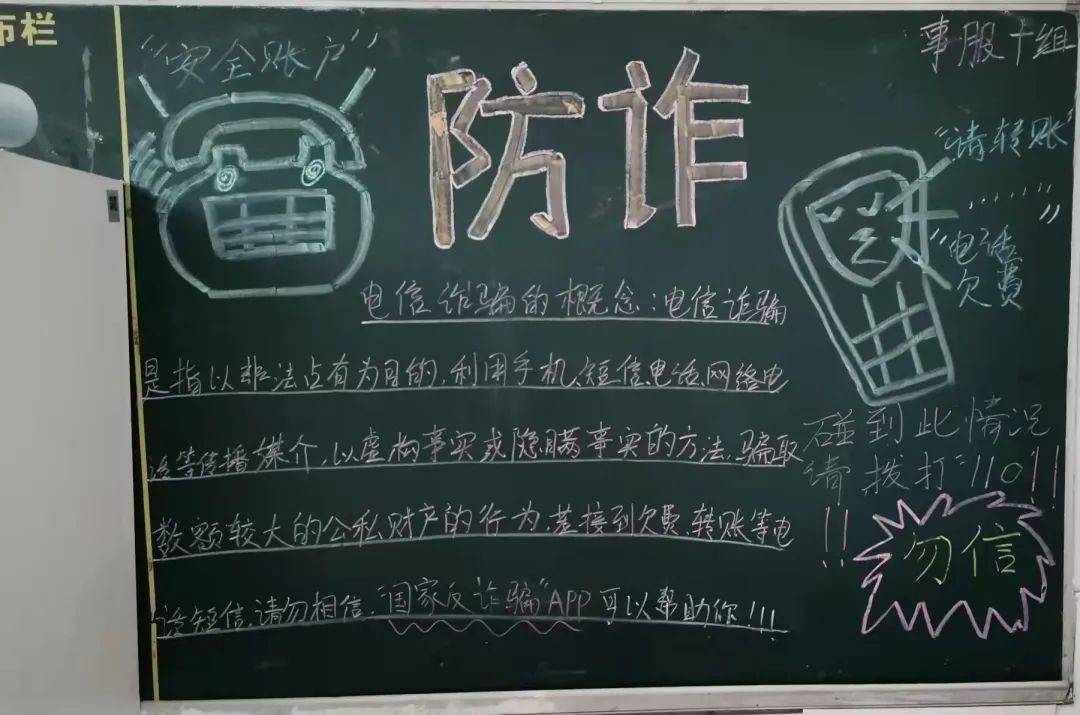 布栏
事服十组
"安全账户"
防诈
"请转账"
……"
"电话
欠費
电信诈骗的概念:电信诈骗
是指以非法占有为目的,利用手机、短信、电话、网络电
话等传播媒介,以虚构事实或隐瞒事实的方法,骗取
数额较大的公私财产的行为,若接到欠费、转账等电
话短信,请勿相信,"国家反诈骗"APP可以帮助你!!!
碰到此情况
请拨打"110"!!
!!
勿信